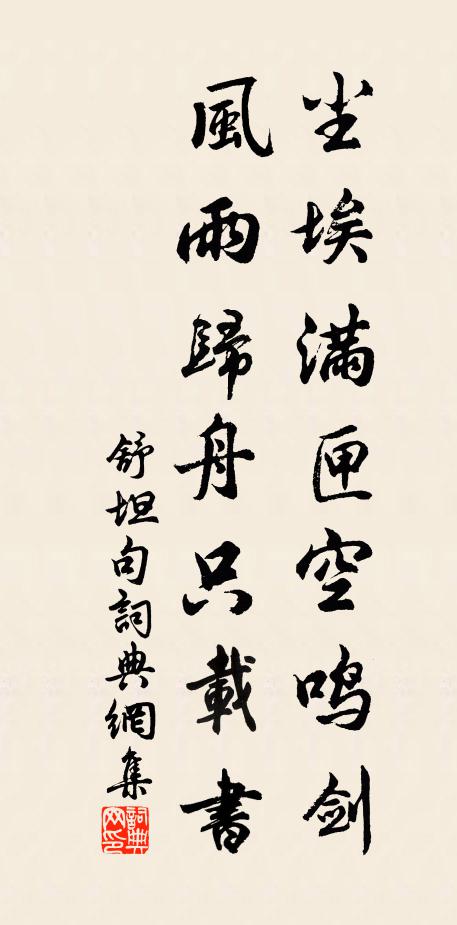 尘埃满匣空鸣剑
風雨歸舟只載書
舒坦句詞典網集
詞典网印